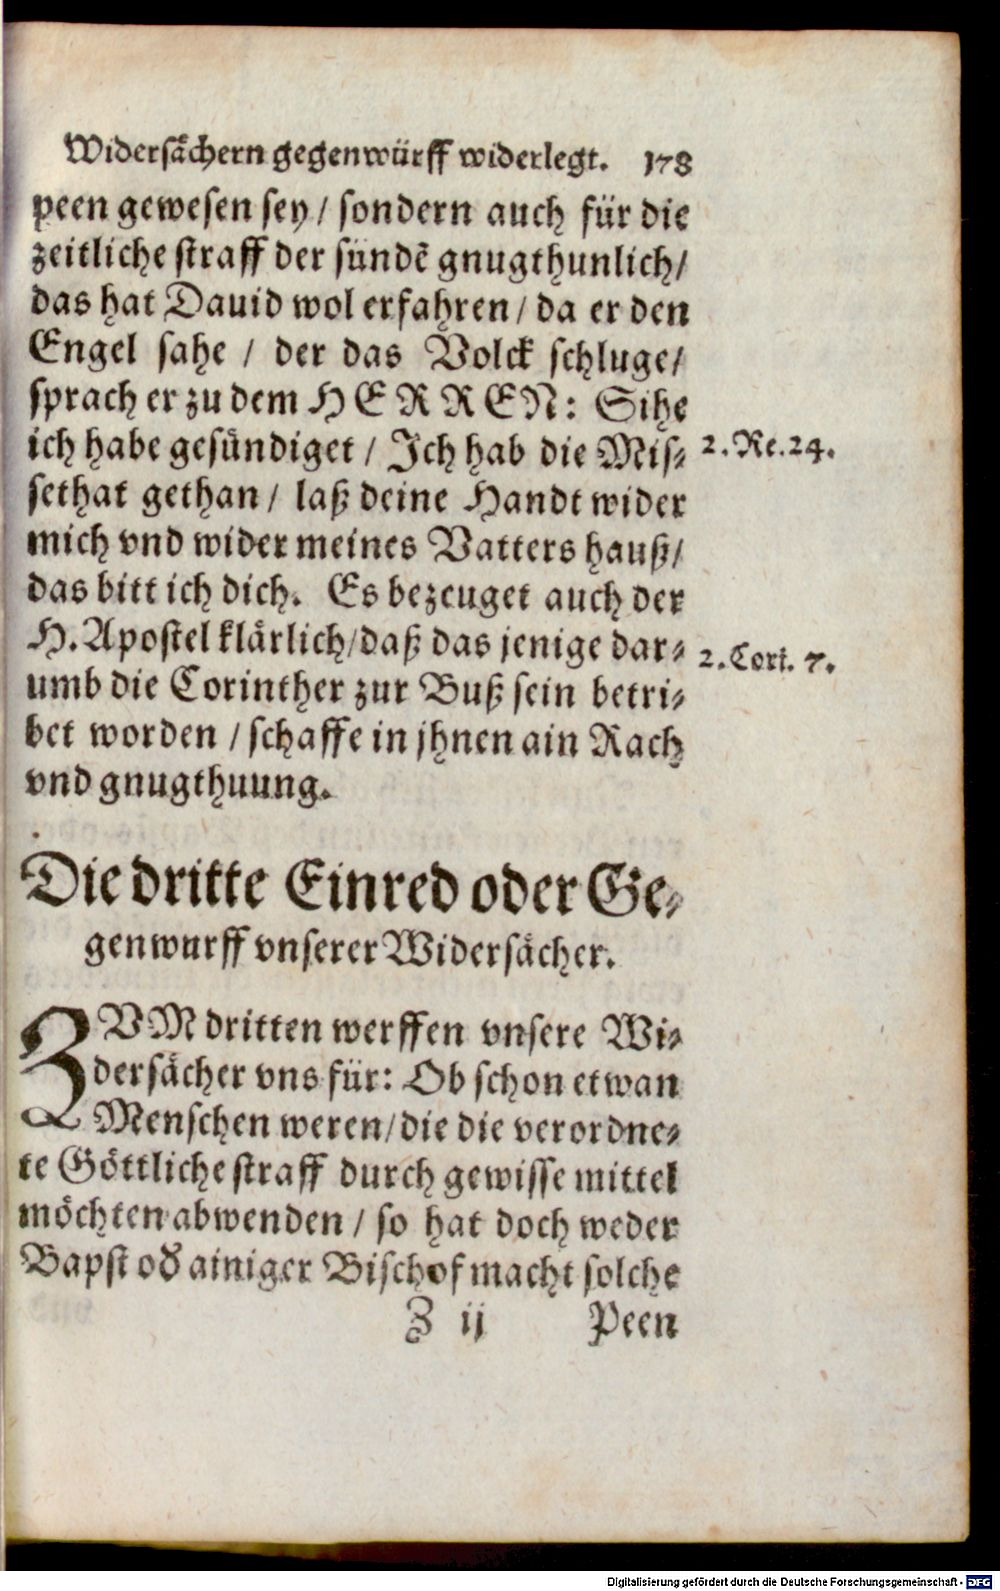 Widersächern gegenwürff widerlegt. 178
peen gewesen sey / sondern auch für die
zeitliche straff der sündẽ gnugthunlich /
das hat Dauid wol erfahren / da er den
Engel sahe / der das Volck schluge /
sprach er zu dem HERREN: Sihe
ich habe gesündiget / Ich hab die Mis-
2. Re. 24.
sethat gethan / laß deine Handt wider
mich vnd wider meines Vatters hauß /
das bitt ich dich. Es bezeuget auch der
H. Apostel klärlich / daß das jenige dar-
2. Cori. 7.
umb die Corinther zur Buß sein betri-
bet worden / schaffe in jhnen ain Rach
vnd gnugthuung.
Die dritte Einred oder Ge-
genwurff vnserer Widersächer.
ZVM dritten werffen vnsere Wi-
dersächer vns für: Ob schon etwan
Menschen weren / die die verordne-
te Göttliche straff durch gewisse mittel
möchten abwenden / so hat doch weder
Bapst oď ainiger Bischof macht solche
Z ij Peen
Digitalisierung gefördert durch die Deutsche Forschungsgemeinschaft - DFG